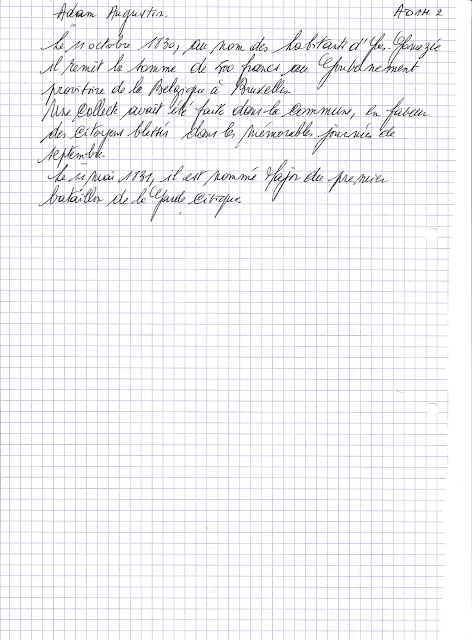 Adam Augustin. ADAM 2
Le 11 octobre 1830, au nom des habitants d'
il remit la somme de 500 francs au Gouvernement
provisoire de la Belgique à Bruxelles
Une collecte avait été faite dans la commune, en faveur
des citoyens blessés dans les mémorables journées de
septembre
Le 11 mai 1831, il est nommé Major du premier
bataillon de la Garde Civique